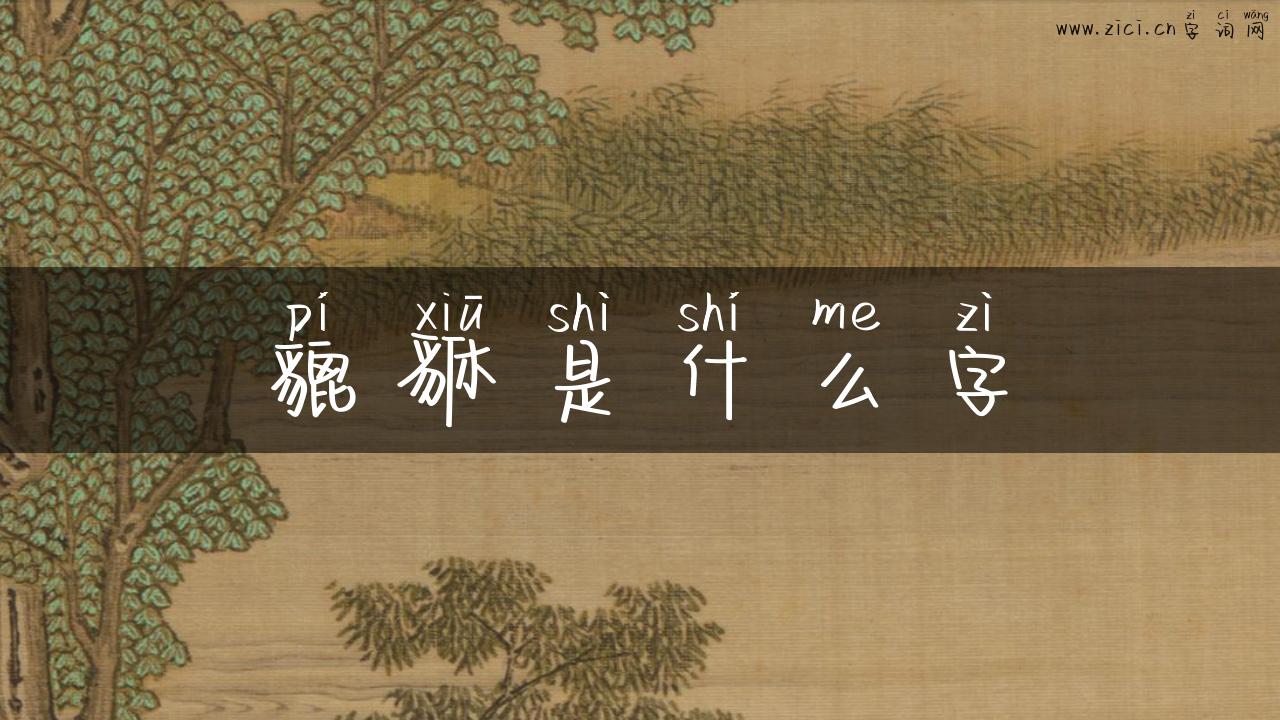 zì cí wǎng
www.zici.cn字词网
pí xiū shì shí me zì
貔貅是什么字